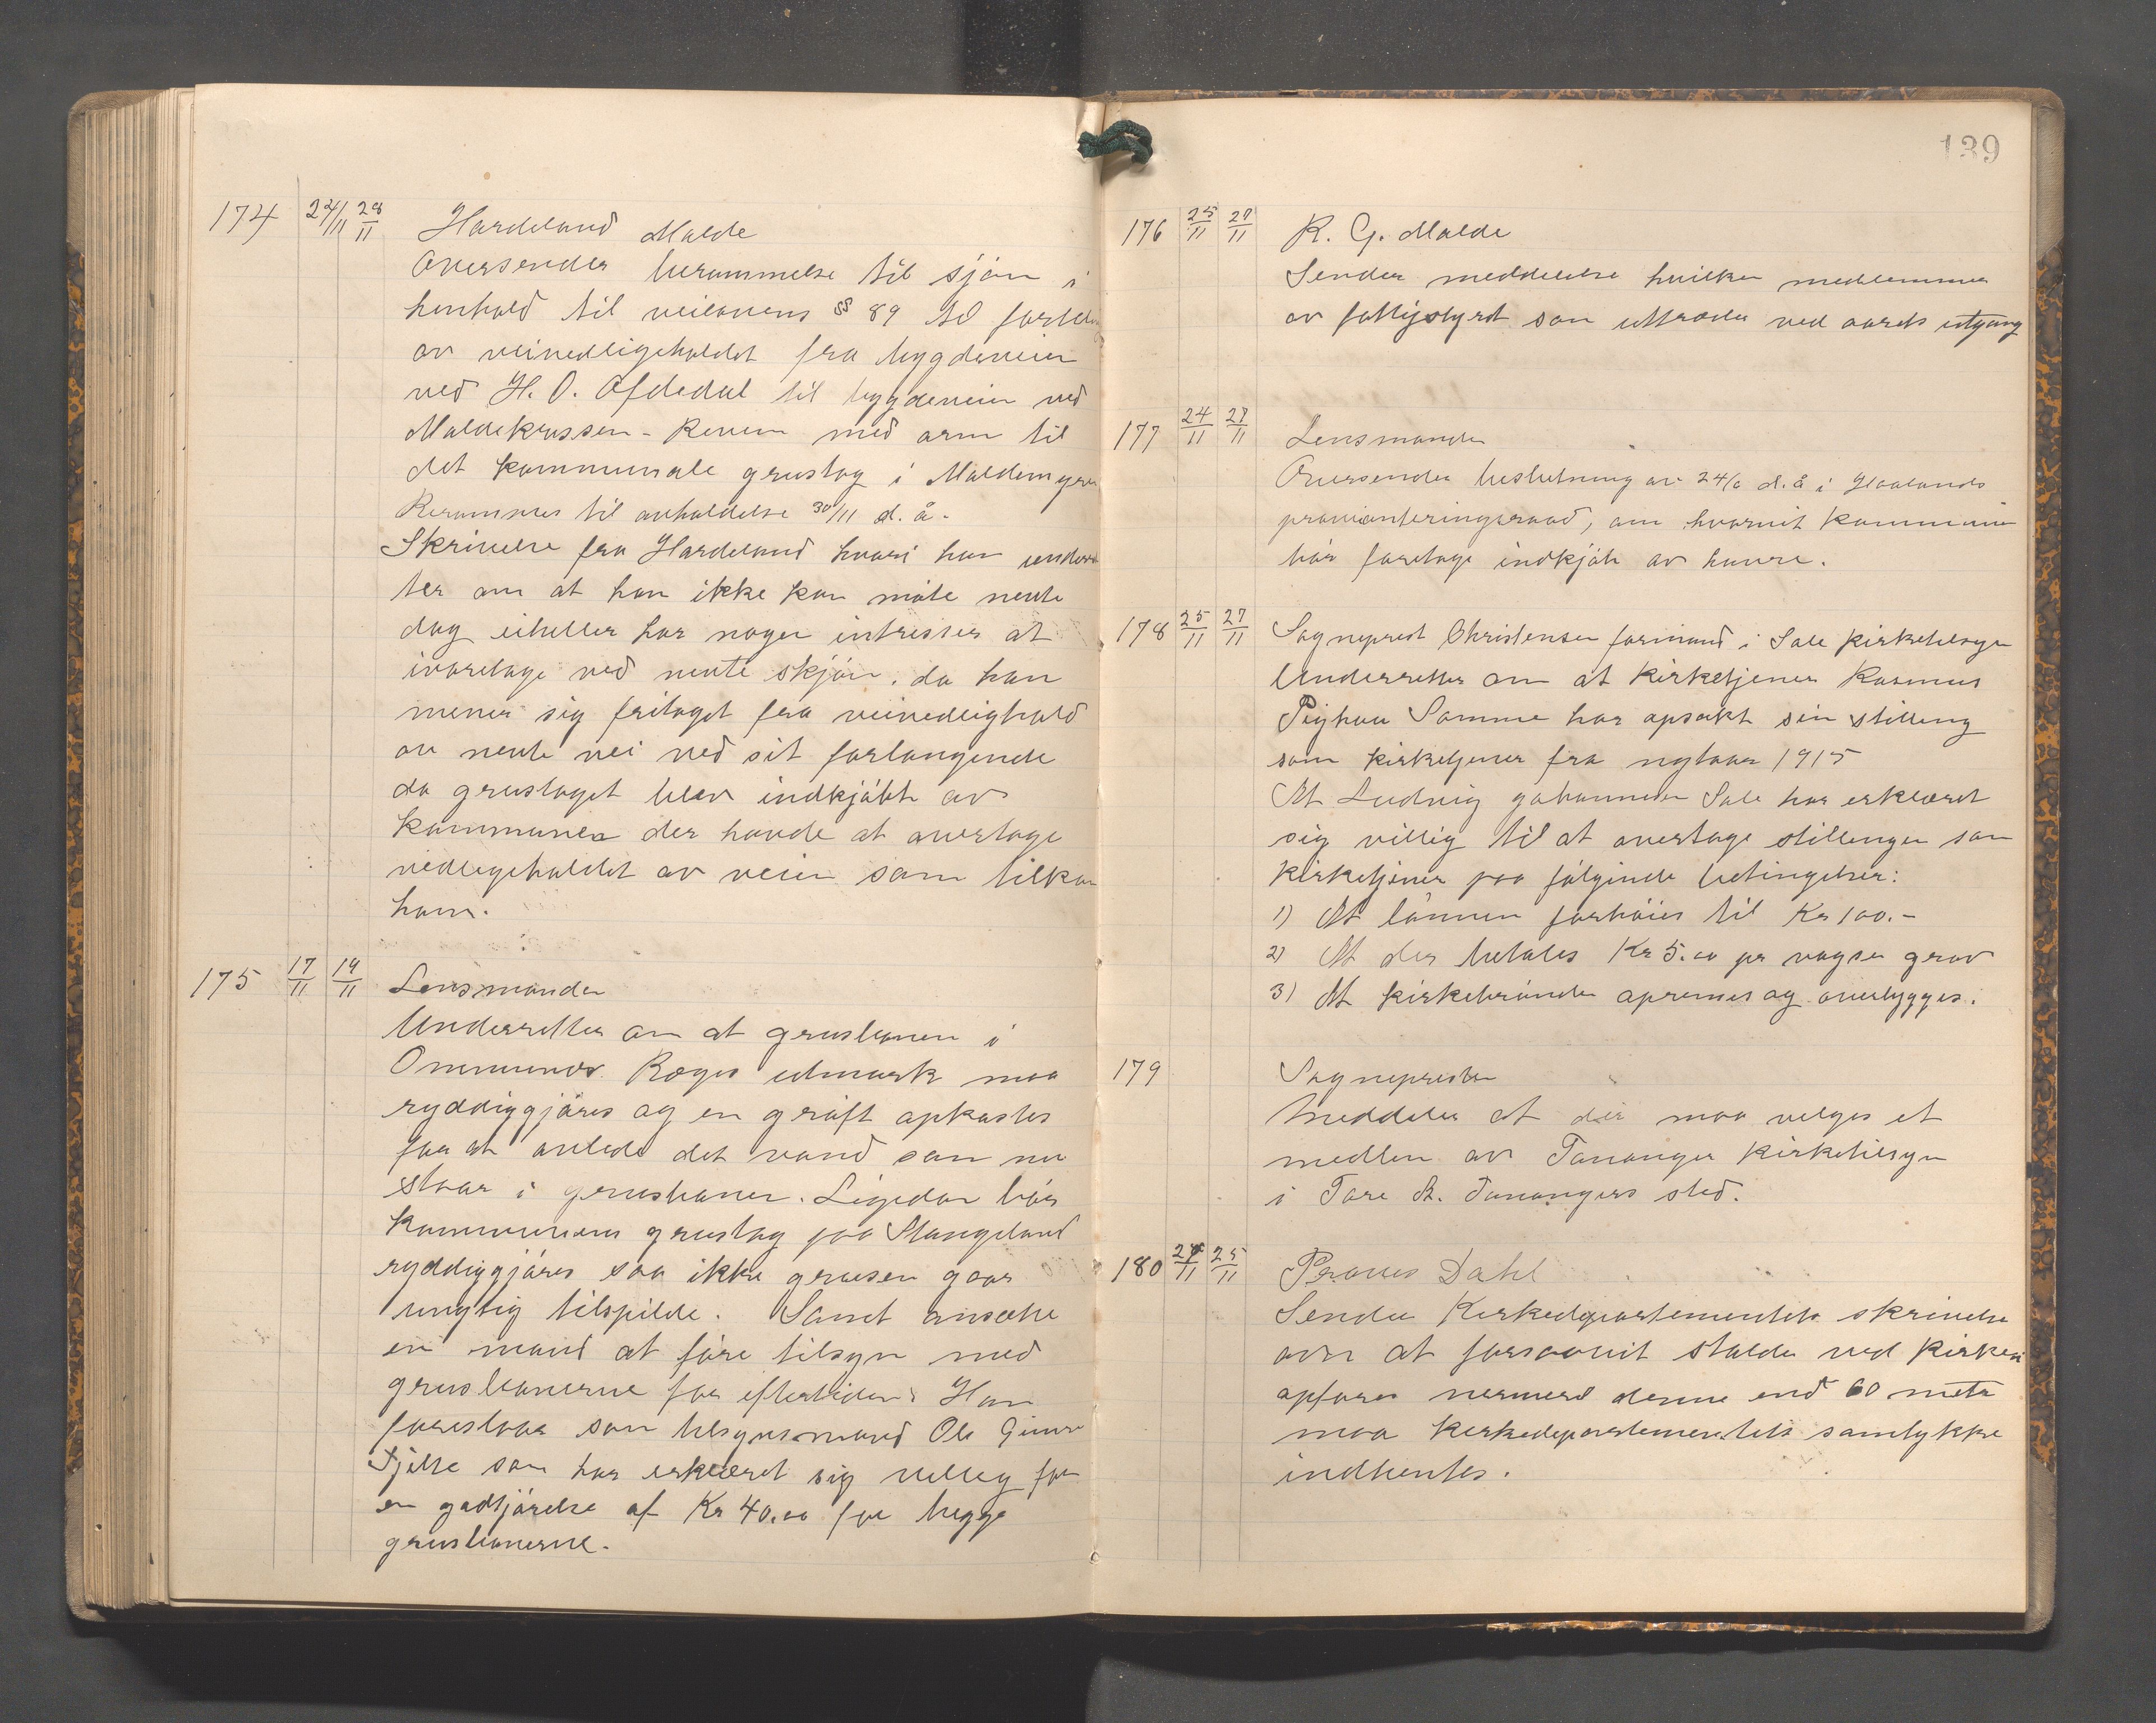 174 24/11 28/11 Hardeland Malde
Oversender berammelse til sjøn i
henhold til veilovens § 89 til
av veivedligeholdet fra bygdeveien
ved H. O. Ofdedal til bygdeveien ved
Maldekrossen - Revem med arm til
det kommunale grustag i Maldemyren
Berammes til avholdelse 30/11 d. å.
Skrivelse fra Hardeland hvori han underret
ter om at han ikke kan møte nevnte
dag eiheller har nogen intresser at
ivaretage ved nevnte skjøn, da han
mener sig fritaget fra veivedlighold
av nevnte vei ved sit forlangende
da grustaget blev indkjøbt av
kommunen der havde at overtage
vedlegeholdet av veien som tilkom
ham.
175 17/11 19/11 Lensmanden
Underretter om at grusbanen i
Ommunds Røges utmark maa
ryddiggjøres og en grøft opkastes
for at avlede det vand som nu
staar i grusbanen. Ligedan bør
kommunens grustag paa Stangeland
ryddiggjøres saa ikke grusen gaar
unytig tilspilde. Samt ansætte
en mand at føre tilsyn med
grusbanerne for eftertiden. Han
foreslaar som tilsynsmand Ole
Tjelse som har erklæret sig villig for
en godtjørelse af Kr 40.00 for begge
grusbanerne.
139
176 25/11 27/11 R. G. Malde
Sender meddelelse hvilke medlemmer
av fattigstyret som uttræder ved aarets utgang
177 24/11 27/11 Lensmanden
Oversender beslutning av d.å i Haalands
provianteringsraad, om hvorvit kommunen
bør foretage indkjøb av havre.
178 25/11 27/11 Sogneprest Christensen formand i Sole kirketilsyn
Underretter om at kirketjener Rasmus
Pighau Sømme har opsakt sin stilling
som kirketjener fra nytaar 1915
At Ludvig Johannesen Sole har erklæret
sig villig til at overtage stillingen som
kirketjener paa følgende betingelser:
1) At lønnen forhøies til Kr 100.-
2) At der betales Kr 5.00 pr voxen grav
3) At kirkebrønden oprenses og overbygges.
179 Sognepresten
Meddeler at der maa velges et
medlem av Tananger kirketilsyn
i Tore R. Tanangers sted.
180 24/11 25/11 Provies Dahl
Sender Kirkedepartementets skrivelse
om at forsaavit stalde ved kirken
opføres nermere denne end 60 meter
maa kirkedepartementets samtykke
indhentes.